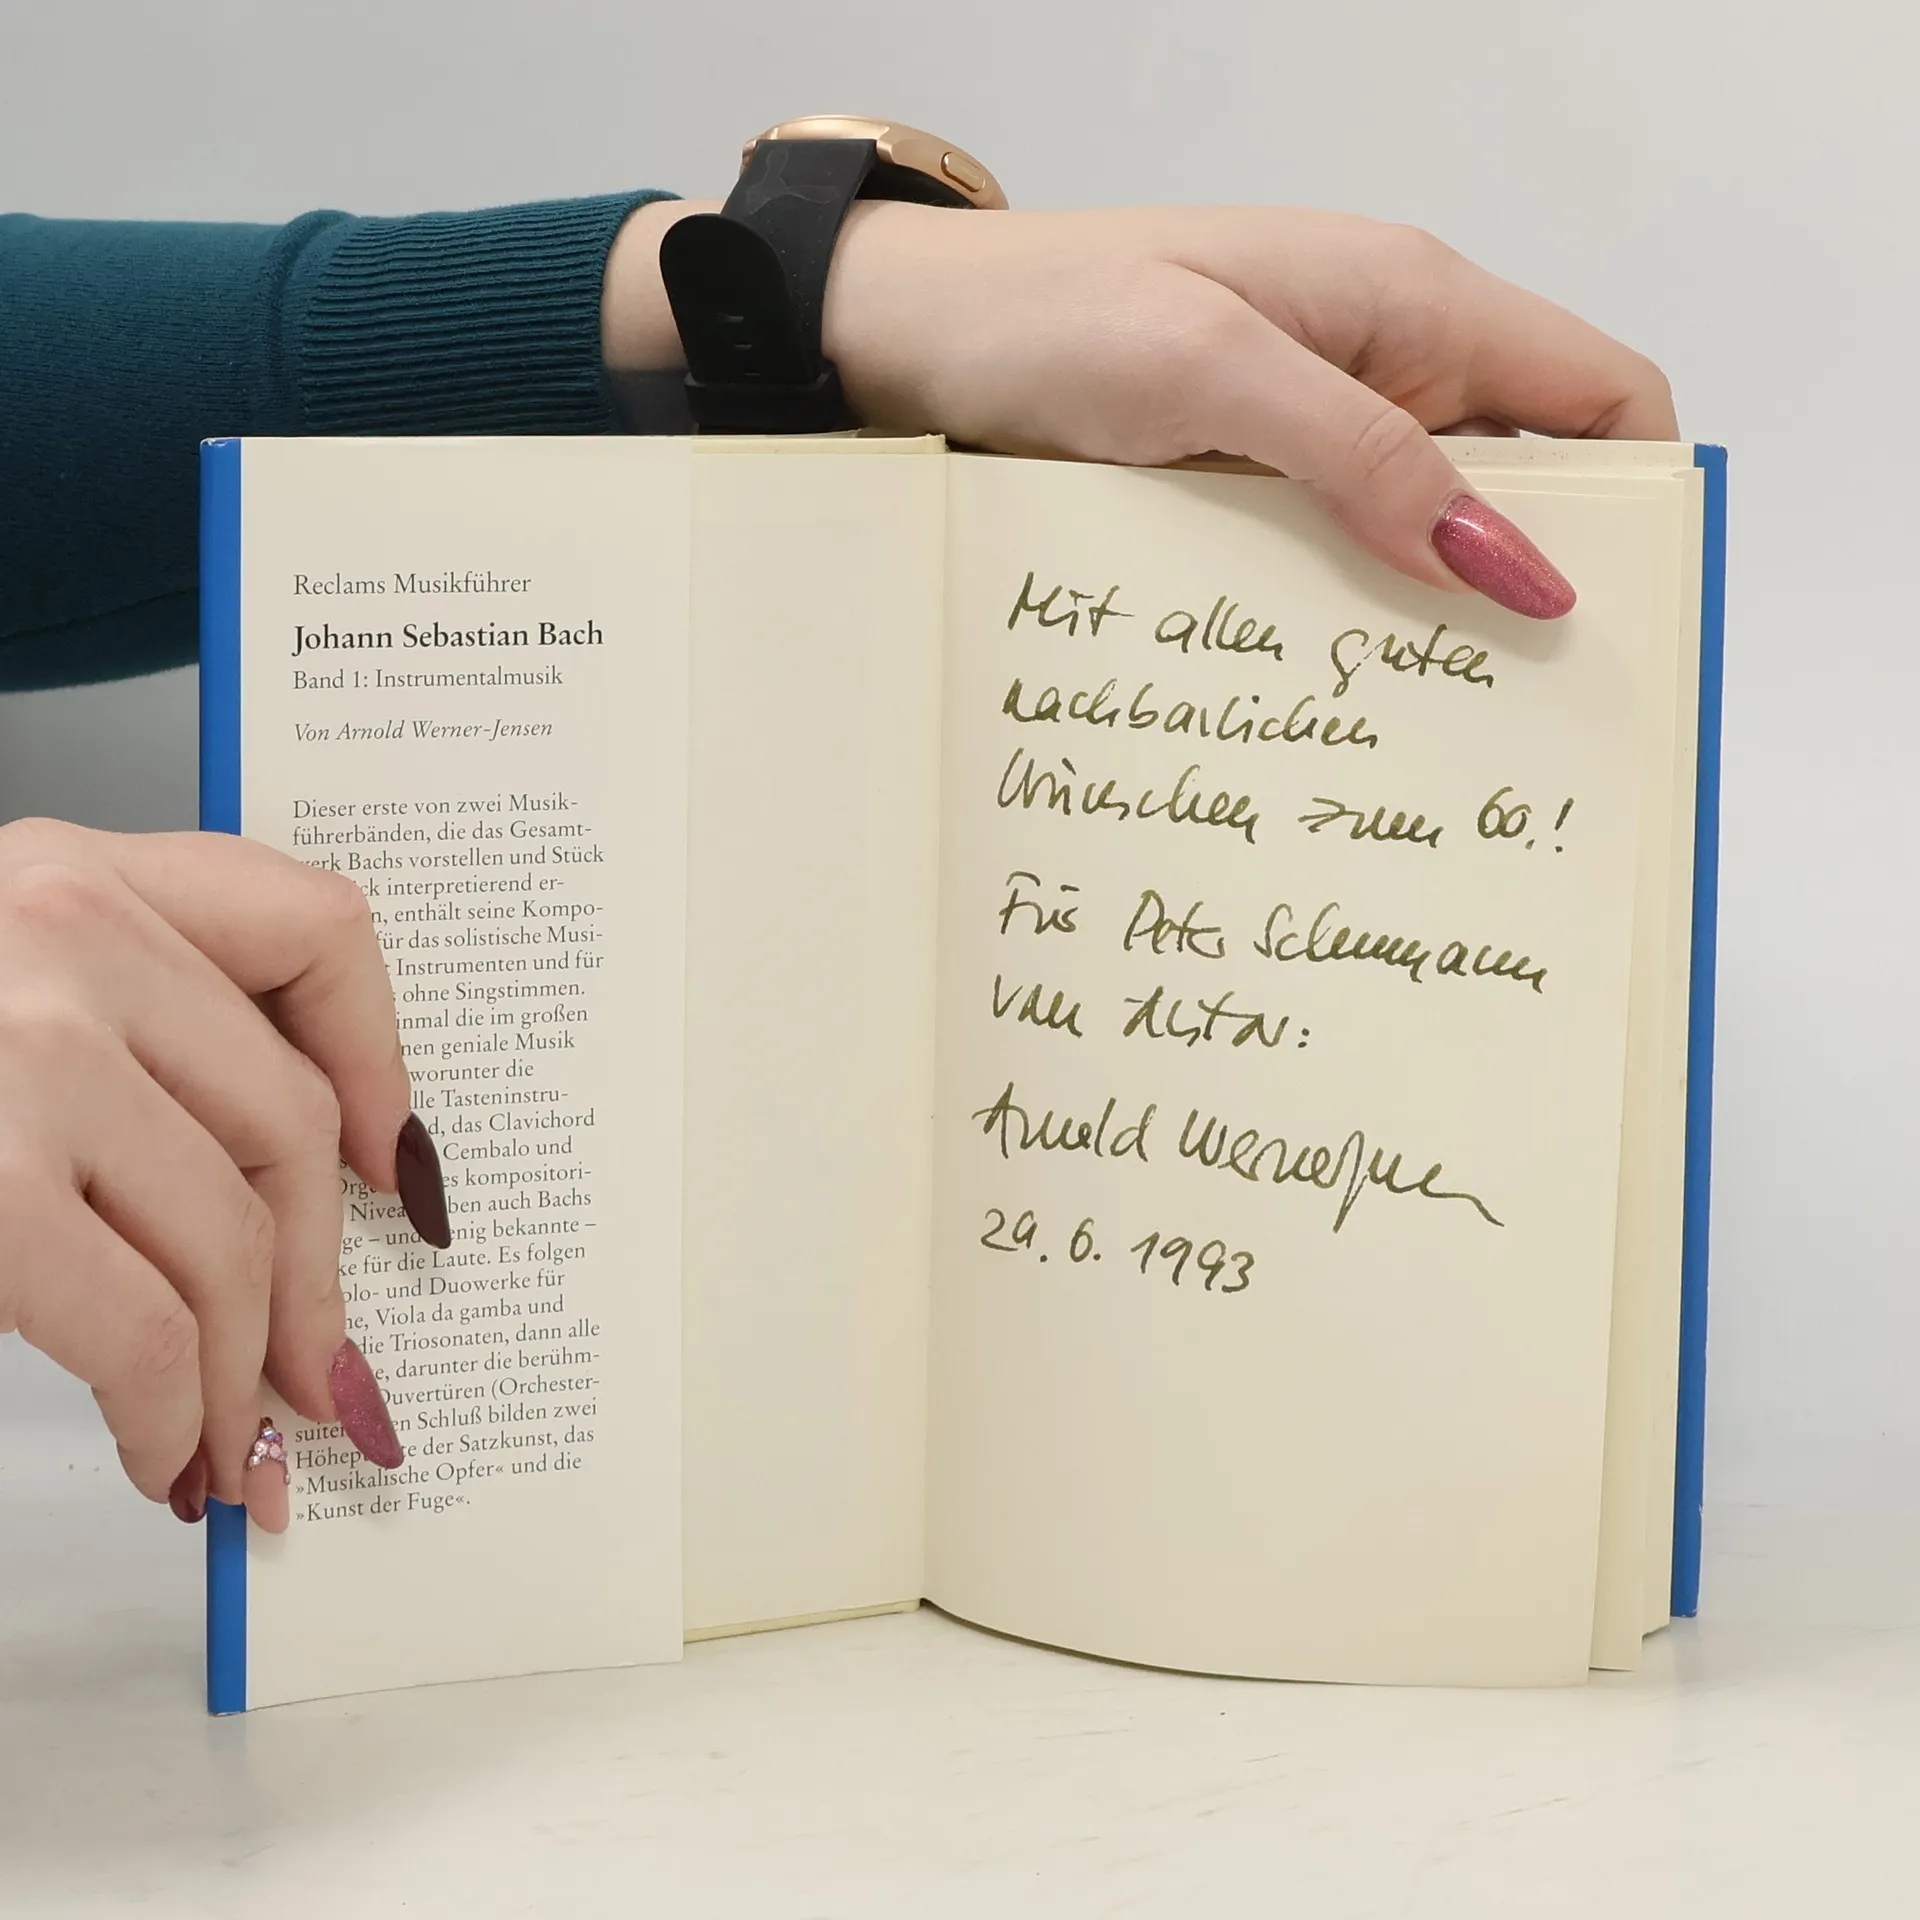 Reclams Musikführer
Johann Sebastian Bach
Band 1: Instrumentalmusik
Von Arnold Werner-Jensen
Dieser erste von zwei Musik-
führerbänden, die das Gesamt-
werk Bachs vorstellen und Stück
ck interpretierend er-
n, enthält seine Kompo-
für das solistische Musi-
Instrumenten und für
ohne Singstimmen.
inmal die im großen
nen geniale Musik
worunter die
lle Tasteninstru-
d, das Clavichord
Cembalo und
es kompositori-
Nivea ben auch Bachs
ge – und wenig bekannte –
ke für die Laute. Es folgen
olo- und Duowerke für
ne, Viola da gamba und
die Triosonaten, dann alle
e, darunter die berühm-
Ouvertüren (Orchester-
suiten en Schluß bilden zwei
Höhep te der Satzkunst, das
»Musikalische Opfer« und die
»Kunst der Fuge«.
Mit allen guten
nachbarlichen
Wünschen zum 60.!
Für Peter Schumann
vom Autor:
Arnold Werner-Jensen
29. 6. 1993